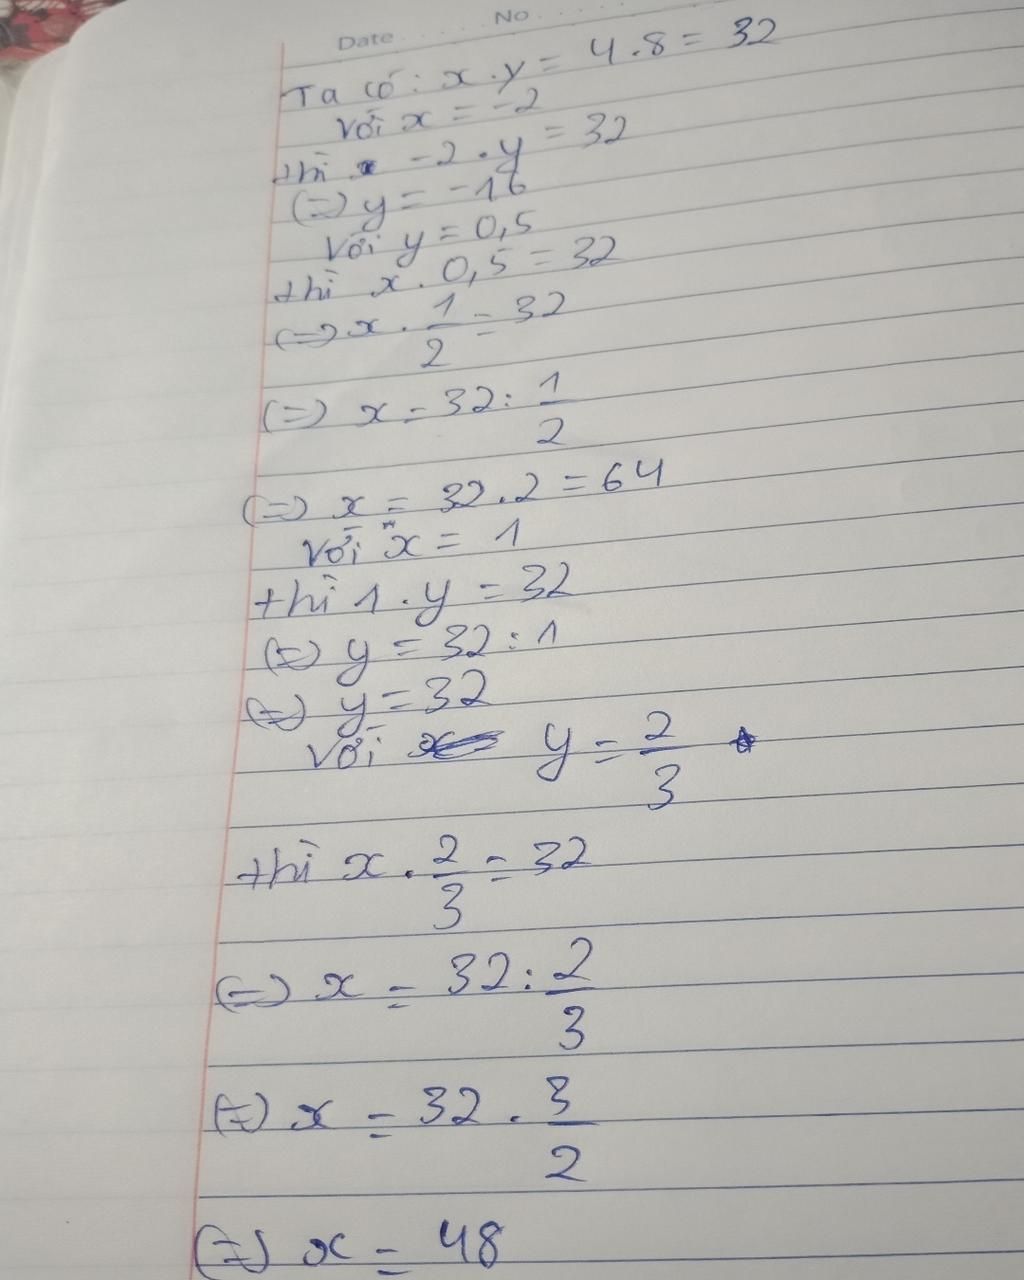 Date No
Ta có: x . y = 4 . 8 = 32
Với x = -2
thì -2 . y = 32
(=) y = -16
Với y = 0,5
thì x . 0,5 = 32
(=) x . 1/2 = 32
(=) x = 32 : 1/2
(=) x = 32 . 2 = 64
Với x = 1
thì 1 . y = 32
(=) y = 32 : 1
(=) y = 32
Với y = 2/3
thì x . 2/3 = 32
(=) x = 32 : 2/3
(=) x = 32 . 3/2
(=) x = 48